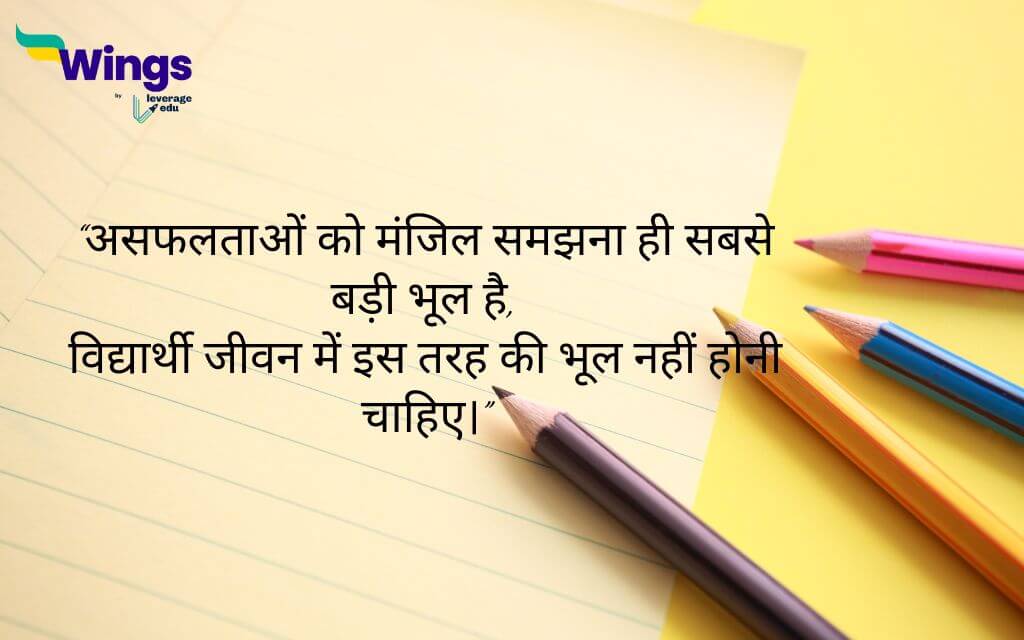 Wings
by leverage
edu
“असफलताओं को मंजिल समझना ही सबसे
बड़ी भूल है,
विद्यार्थी जीवन में इस तरह की भूल नहीं होनी
चाहिए।”